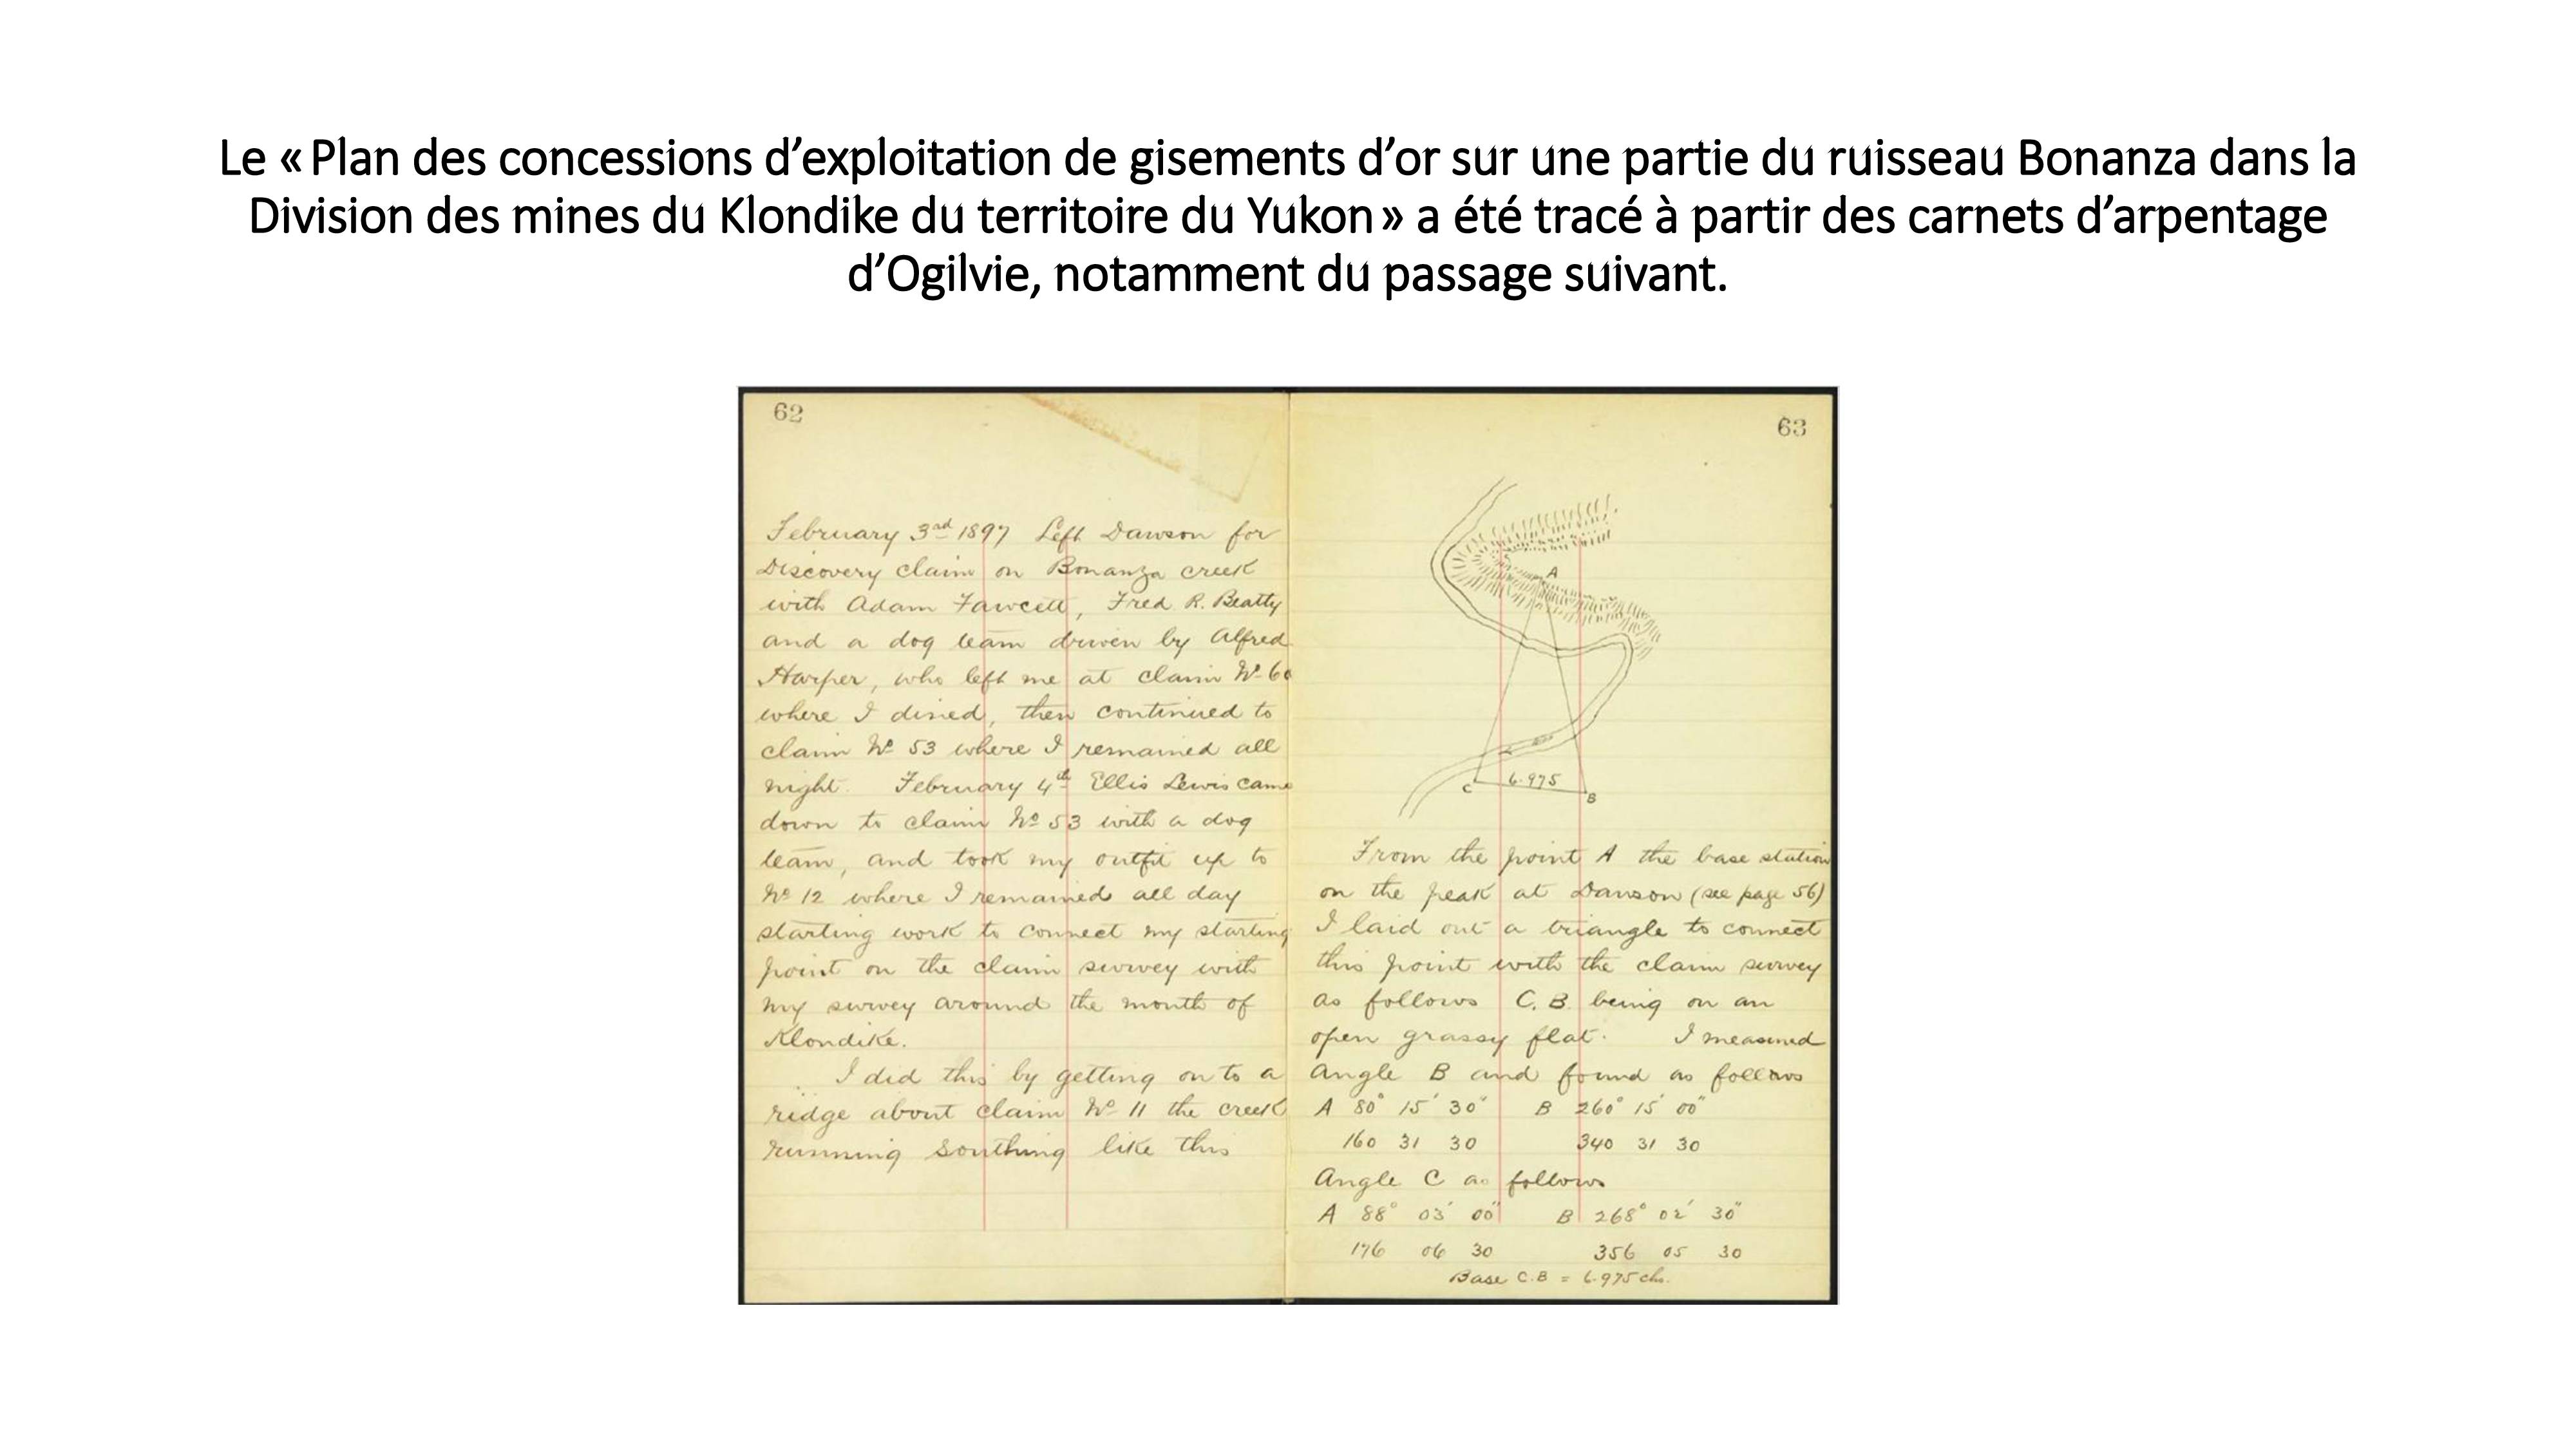 Le « Plan des concessions d’exploitation de gisements d’or sur une partie du ruisseau Bonanza dans la
Division des mines du Klondike du territoire du Yukon » a été tracé à partir des carnets d’arpentage
d’Ogilvie, notamment du passage suivant.
62
February 3rd 1897 Left Dawson for
Discovery claim on Bonanza creek
with Adam Fawcett, Fred R. Beatty
and a dog team driven by Alfred
Harper, who left me at claim No 60
where I dined, then continued to
claim No 53 where I remained all
night. February 4th Ellis Lewis came
down to claim No 53 with a dog
team, and took my outfit up to
No 12 where I remained all day
starting work to connect my starting
point on the claim survey with
my survey around the month of
Klondike.
I did this by getting on to a
ridge about claim No 11 the creek
running southing like this
63
A
C 6.975 B
From the point A the base station
on the peak at Dawson (see page 56)
I laid out a triangle to connect
this point with the claim survey
as follows C.B. being on an
open grassy flat. I measured
Angle B and found as follows
A 80° 15' 30" B 260° 15' 00"
160 31 30 340 31 30
Angle C as follows
A 88° 03' 00" B 268° 02' 30"
176 06 30 356 05 30
Base C.B = 6.975 chs.